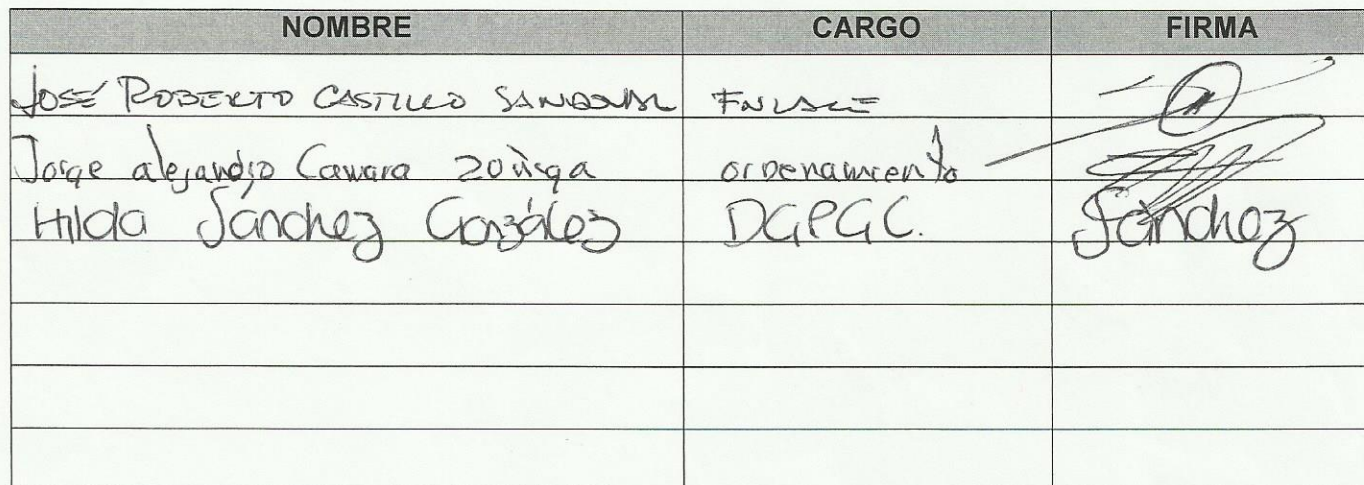 NOMBRE CARGO FIRMA
JOSÉ ROBERTO CASTILLO SANDOVAL ENLACE
Jorge alejandro Camara Zoñiga ordenamiento
Hilda Sánchez González DGPGC. Sánchez